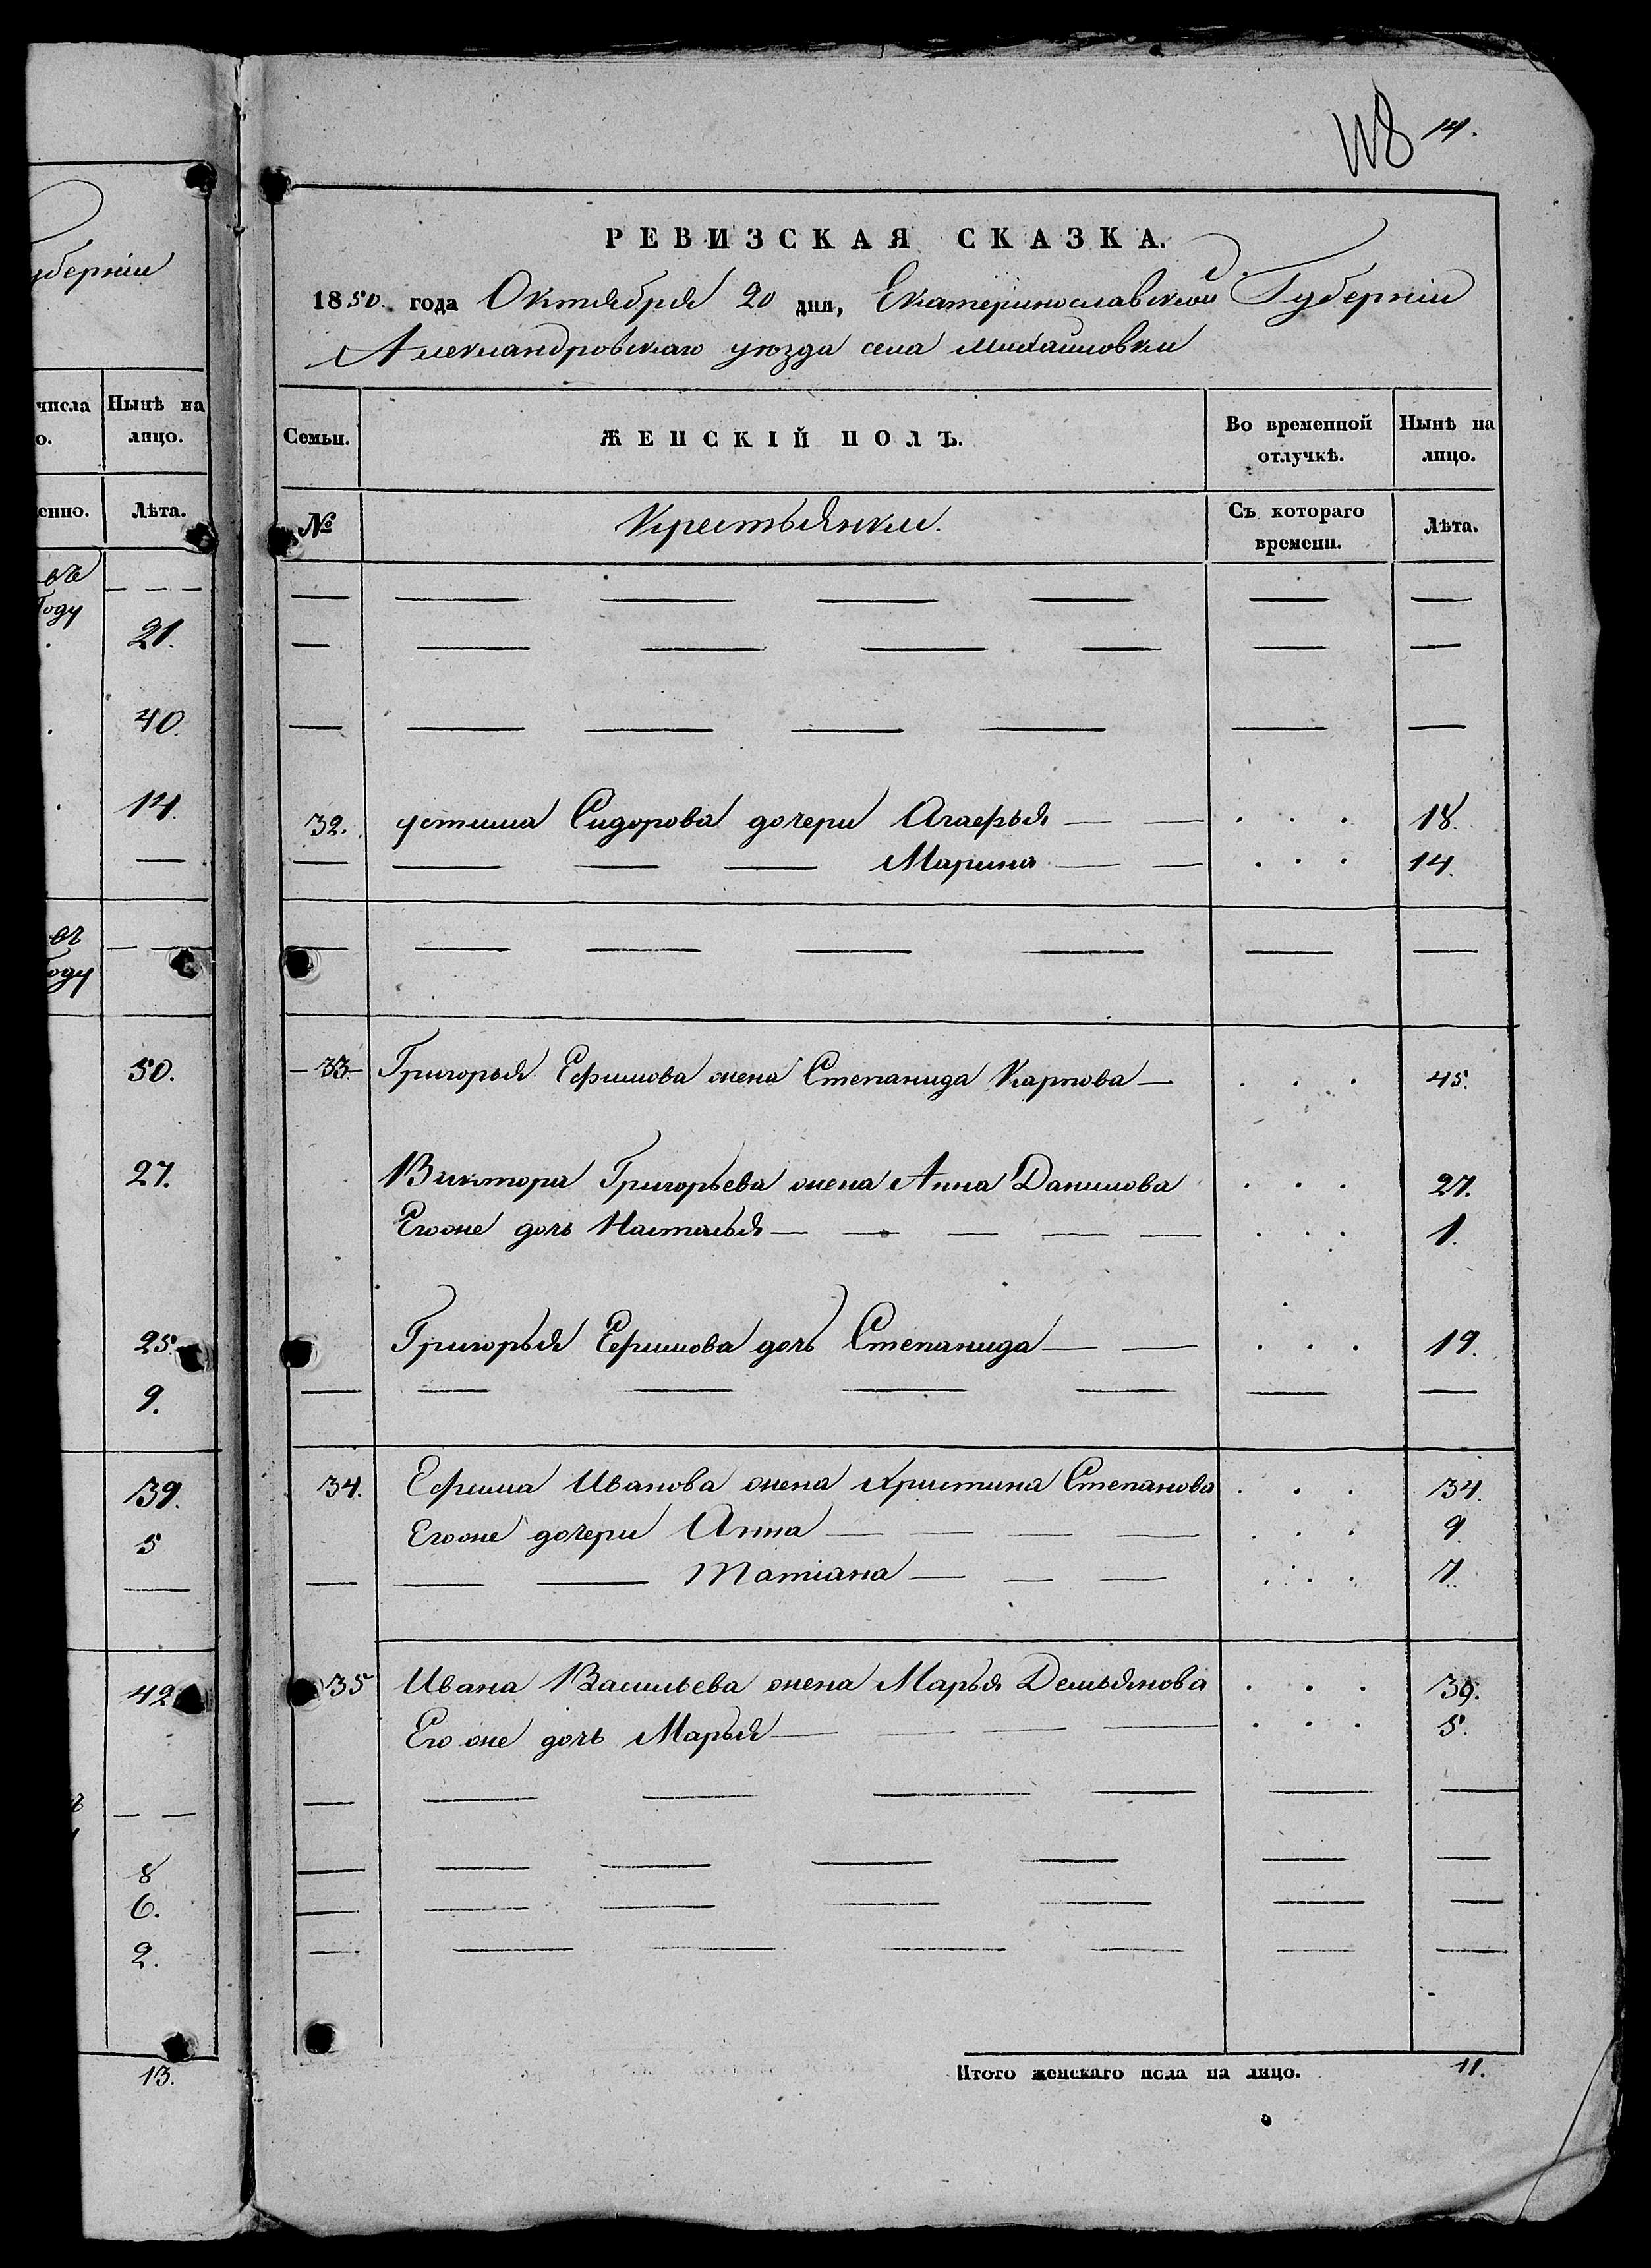 118 14.
уберніи
числа Нынѣ на
о. лицо.
енно. Лѣта.
въ
Году
21.
40.
14.
въ
оду
50.
27.
25.
9.
39.
5
42
8
6.
2.
13.
РЕВИЗСКАЯ СКАЗКА.
1850. года Октября 20 дня, Екатеринославской Губерніи
Александровскаго уѣзда села Михайловки
Семьи. ЖЕНСКІЙ ПОЛЪ. Во временной отлучкѣ. Нынѣ на лицо.
№ Крестьянки. Съ котораго времени. Лѣта.
32. устима Сидорова дочери Агафья — — . . . 18.
— — — — Марина — — . . . 14.
33. Григорья Ефимова жена Степанида Карпова — . . . 45.
Виктора Григорьева жена Анна Данилова . . . 27.
Егоже дочь Настасья — — — — — . . . 1.
Григорья Ефимова дочь Степанида — — . . . 19.
34. Ефима Иванова жена Христина Степанова . . . 34.
Егоже дочери Анна — — — — . . . 9.
— — — Татіана — — — . . . 7.
35 Ивана Васильева жена Марья Демьянова . . . 39.
Его же дочь Марья — — — — . . . 5.
Итого женскаго пола на лицо. 11.